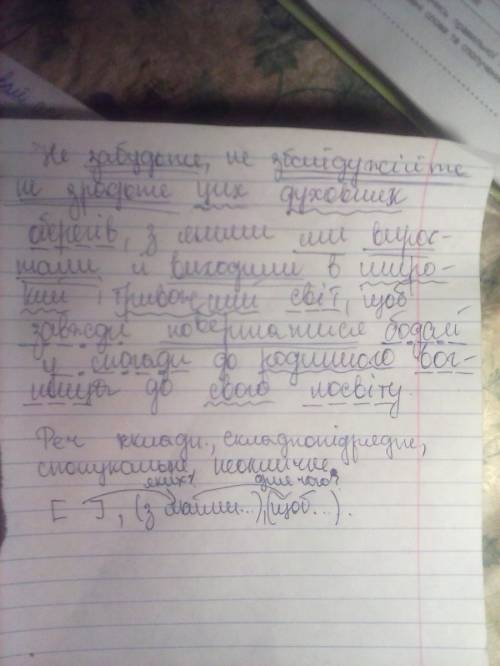 Не забудьте, не збайдужійте
не зрадьте цих духовних
оберегів, з якими ми вирос-
тали й виходили в широ-
кий тривожний світ, щоб
завжди повертатися бодай
у спогади до родинного вог-
нища до свого посвіту.
Реч складн., складнопідрядне,
спонукальне, неоклична.
яких? для чого?
[ ], (з якими...), (щоб...).